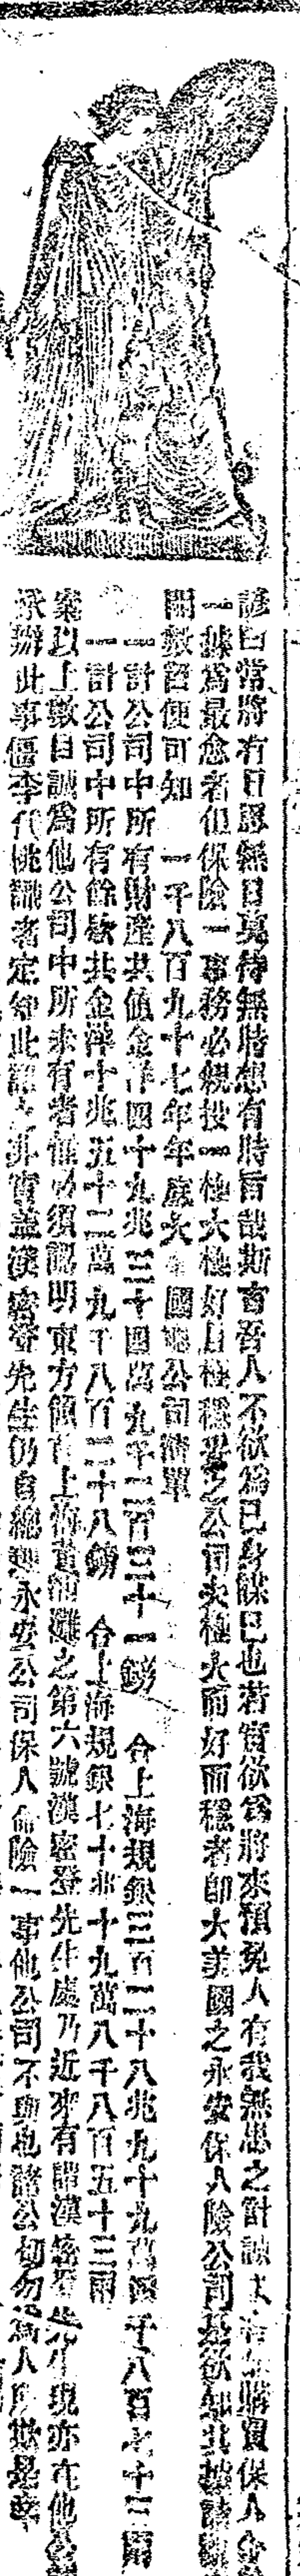 諺曰常將有日思無日莫待無時想有時旨哉斯言吾人不欲爲已身謀已也若實欲爲將來預免人有我無患之計誠購買保人
一據爲最愈者但保險一事務必親投一極大極好且極穩妥之公司夫極大而好而穩者卽大美國之永安保人險公司是欲知其據請
開數習便可知　一千八百九十七年年底大國公司清單
一計公司中所有財產共値金洋四十九兆三十四萬九千二百三十一鎊　合上海規銀三百二十八兆九十九萬四千八百七十三兩
一計公司中所有餘欵共金洋十兆五十二萬九千八百二十八鎊　合上海規銀七十兆十九萬八千八百五十三兩
案以上數目誠爲他公司中所未有者惟必須認明東方上海黃浦灘之第六號漢密登先生處乃近來有謂漢密登先生現亦在他公
承辦此事僵李代桃識者定知此謠之非實蓋漢密登先生仍自總理永安公司保人命險一事他公司不與也諸公切勿爲人所欺是幸